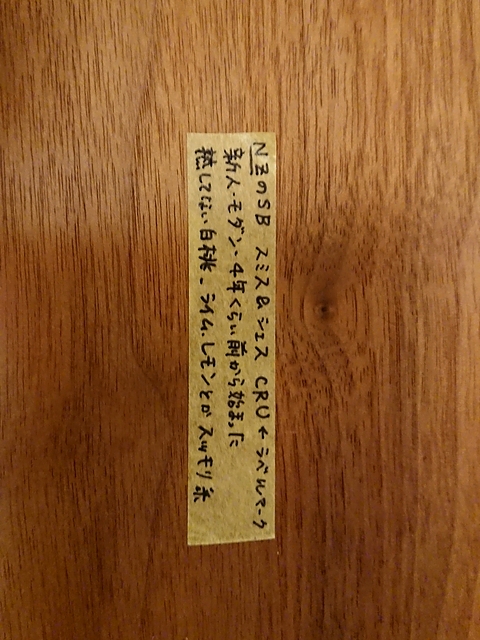 NZのSB スミス&シェス CRU←ラベルマーク
新人・モダン・4年くらい前から始まった
熟してない白桃、ライム、レモンとかスッキリ系